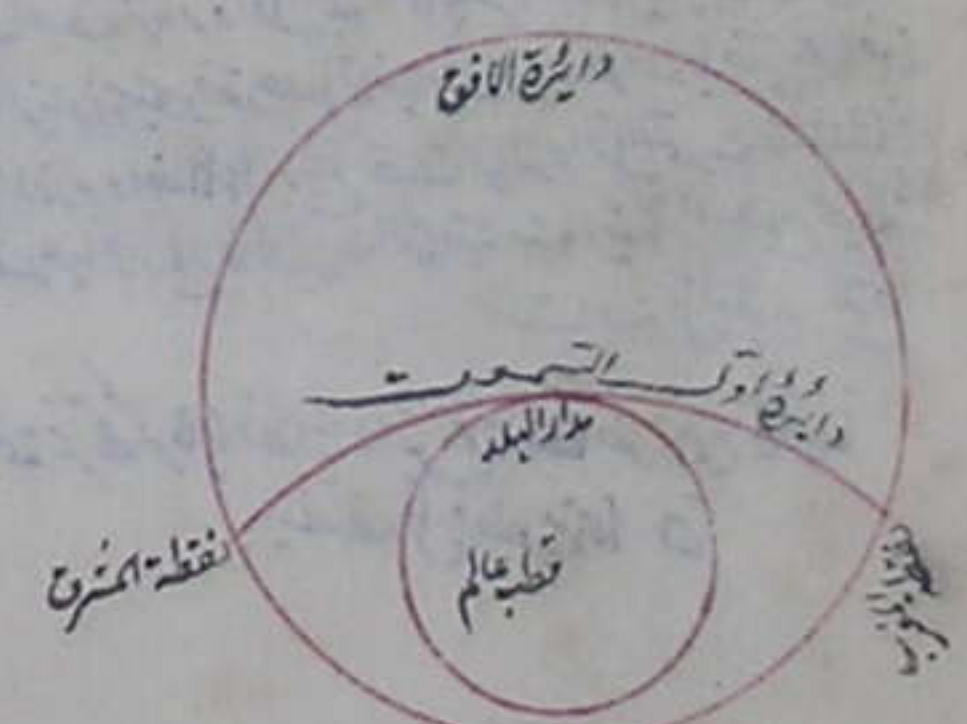 دايرة الافق
دايرة اول السموت
مدار البلد
قطب عالم
نقطة المشرق